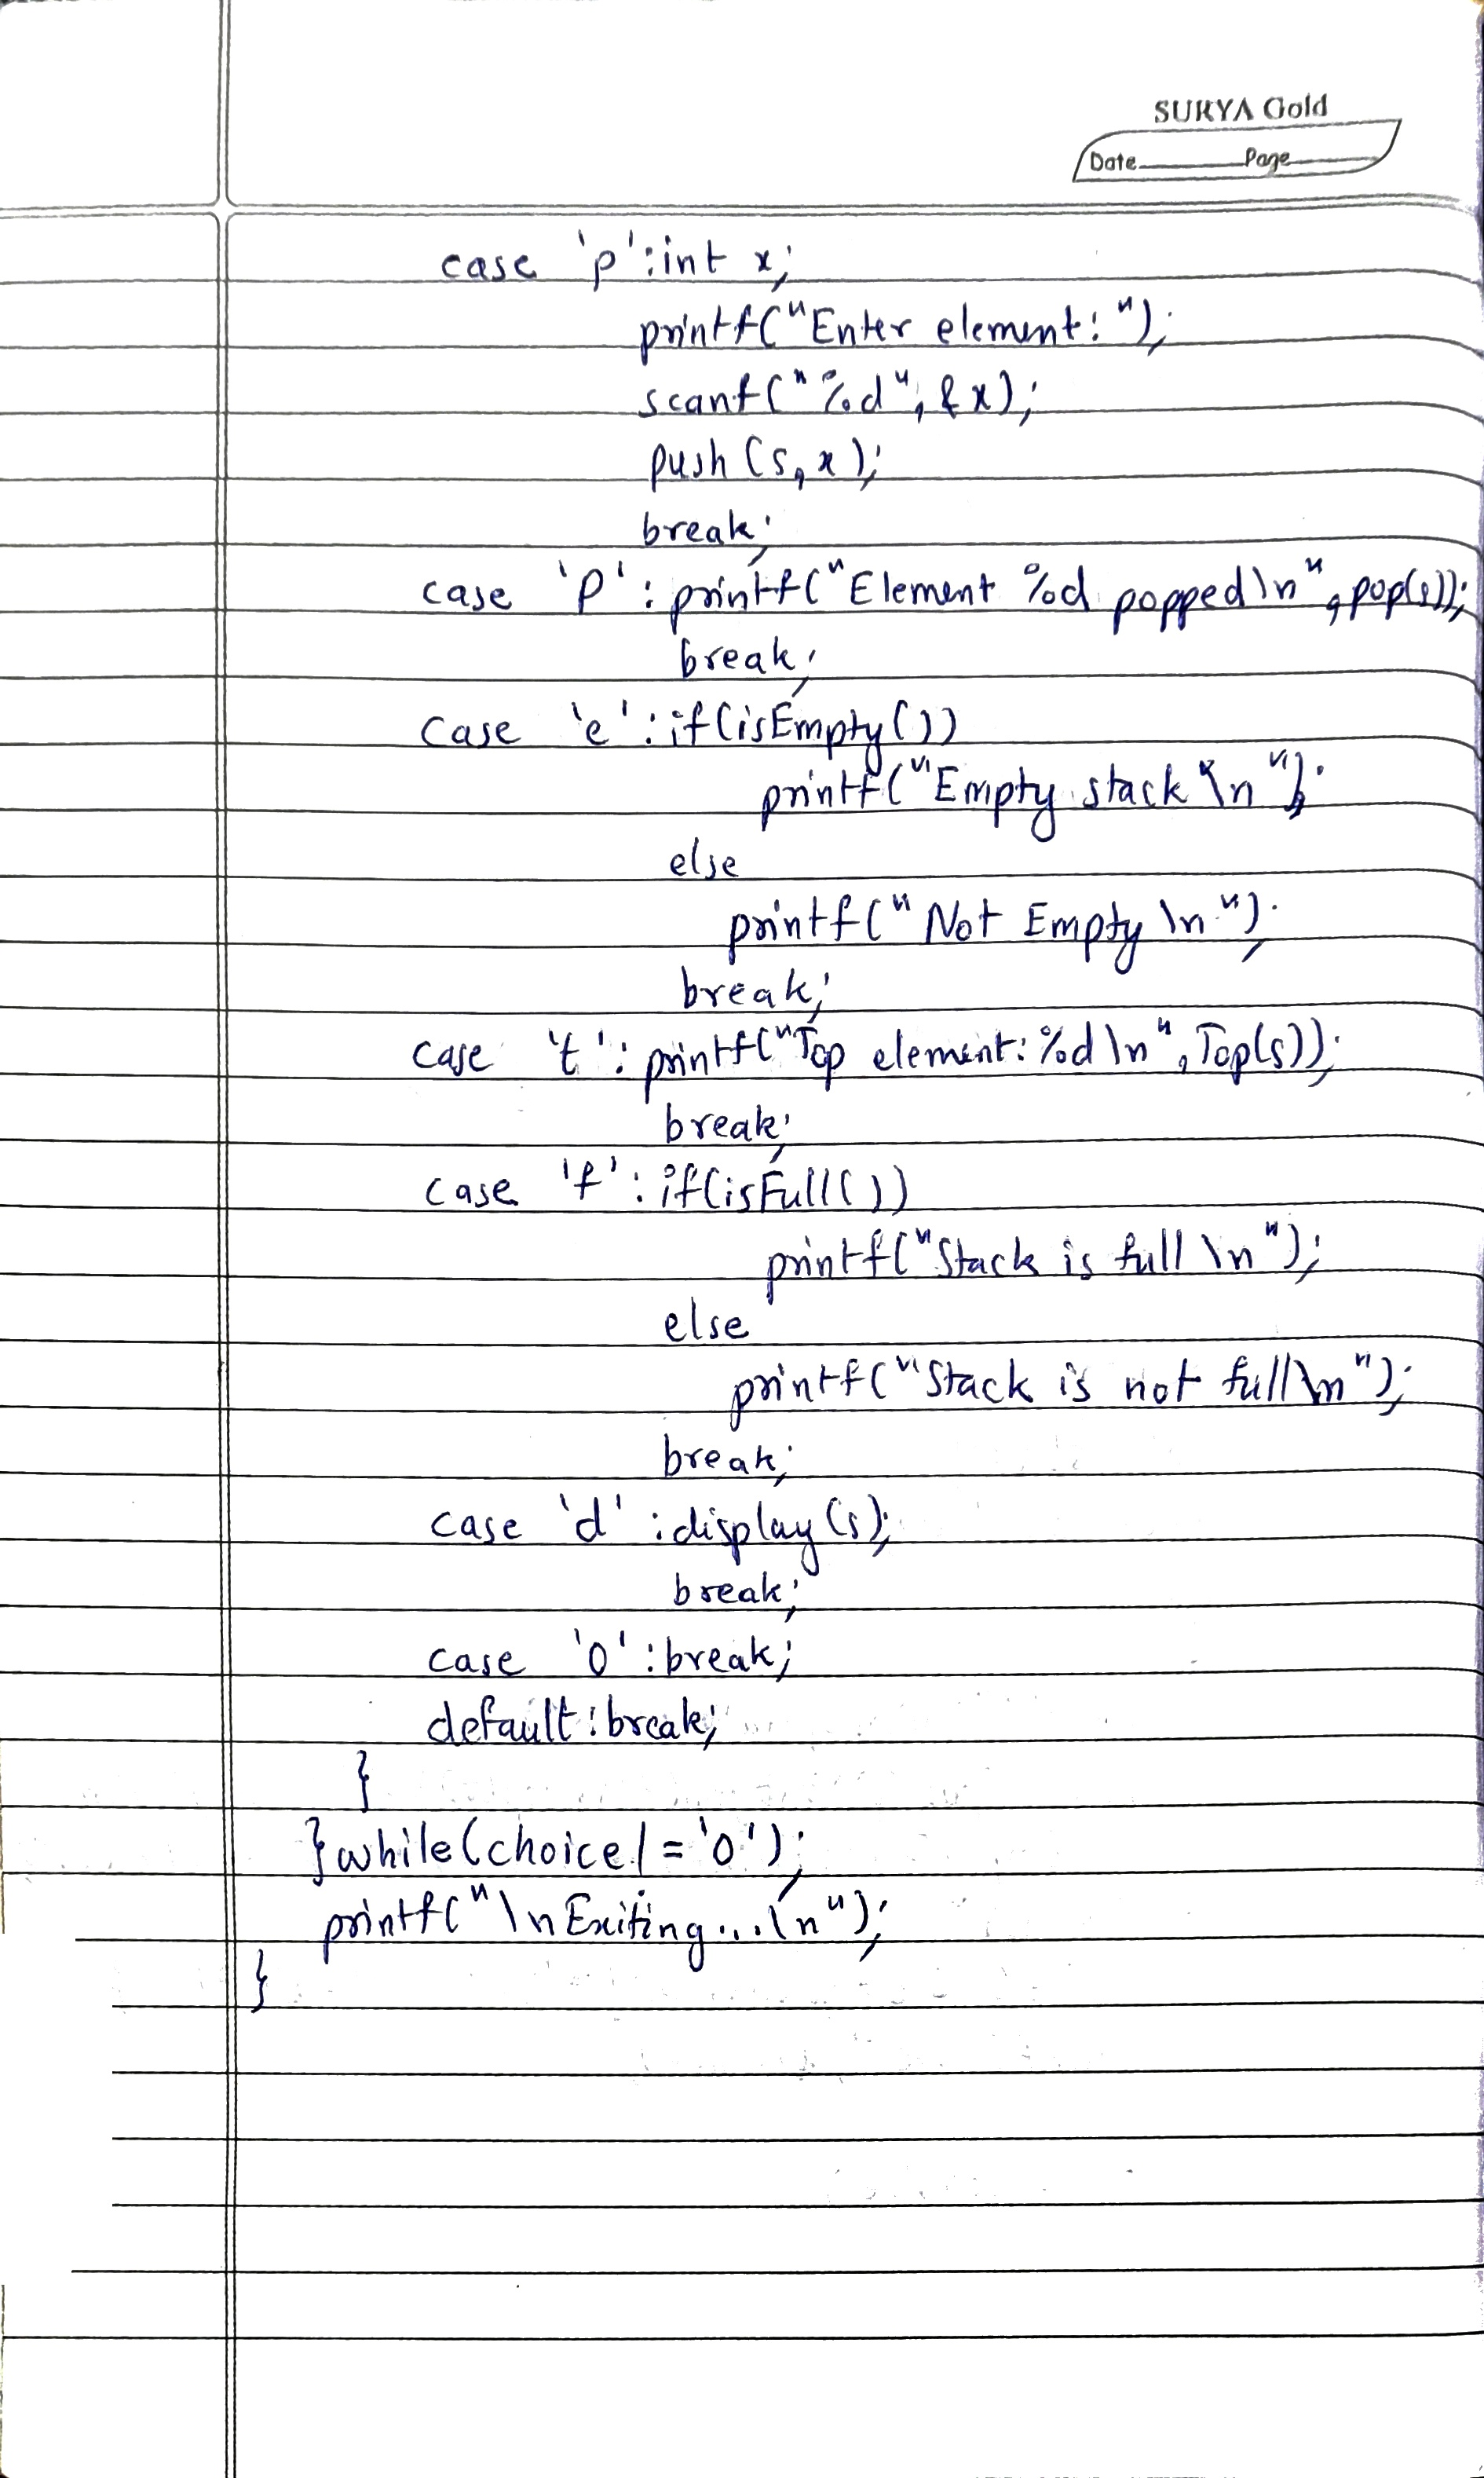 SURYA Gold
Date Page
case 'p':int x;
printf("Enter element: ");
scanf("%d", &x);
push (s, x);
break;
case 'P': printf("Element %d popped\n", pop(s));
break;
case 'e': if(isEmpty())
printf("Empty stack \n");
else
printf("Not Empty \n");
break;
case 't': printf("Top element: %d \n", Top(s));
break;
case 'f': if(isFull())
printf("Stack is full \n");
else
printf("Stack is not full\n");
break;
case 'd' : display(s);
break;
case '0' : break;
default: break;
}
}while(choice!='0');
printf("\nExiting...\n");
}